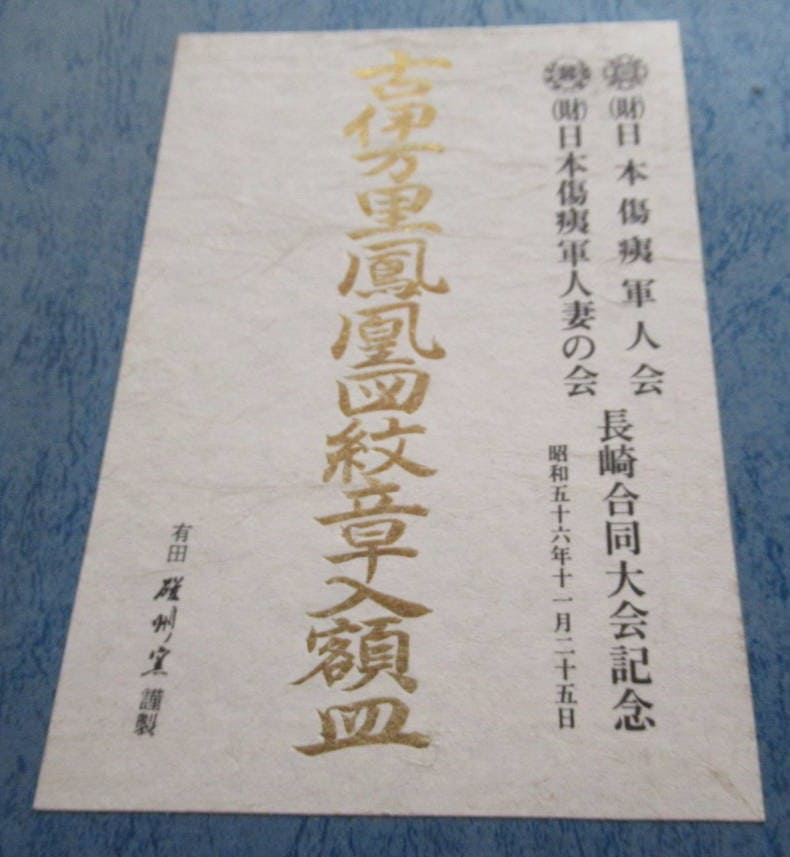 (財)日本傷痍軍人会
(財)日本傷痍軍人妻の会
長崎合同大会記念
昭和五十六年十一月二十五日
古伊万里鳳凰図紋章入額皿
有田 碓州ノ窯 謹製